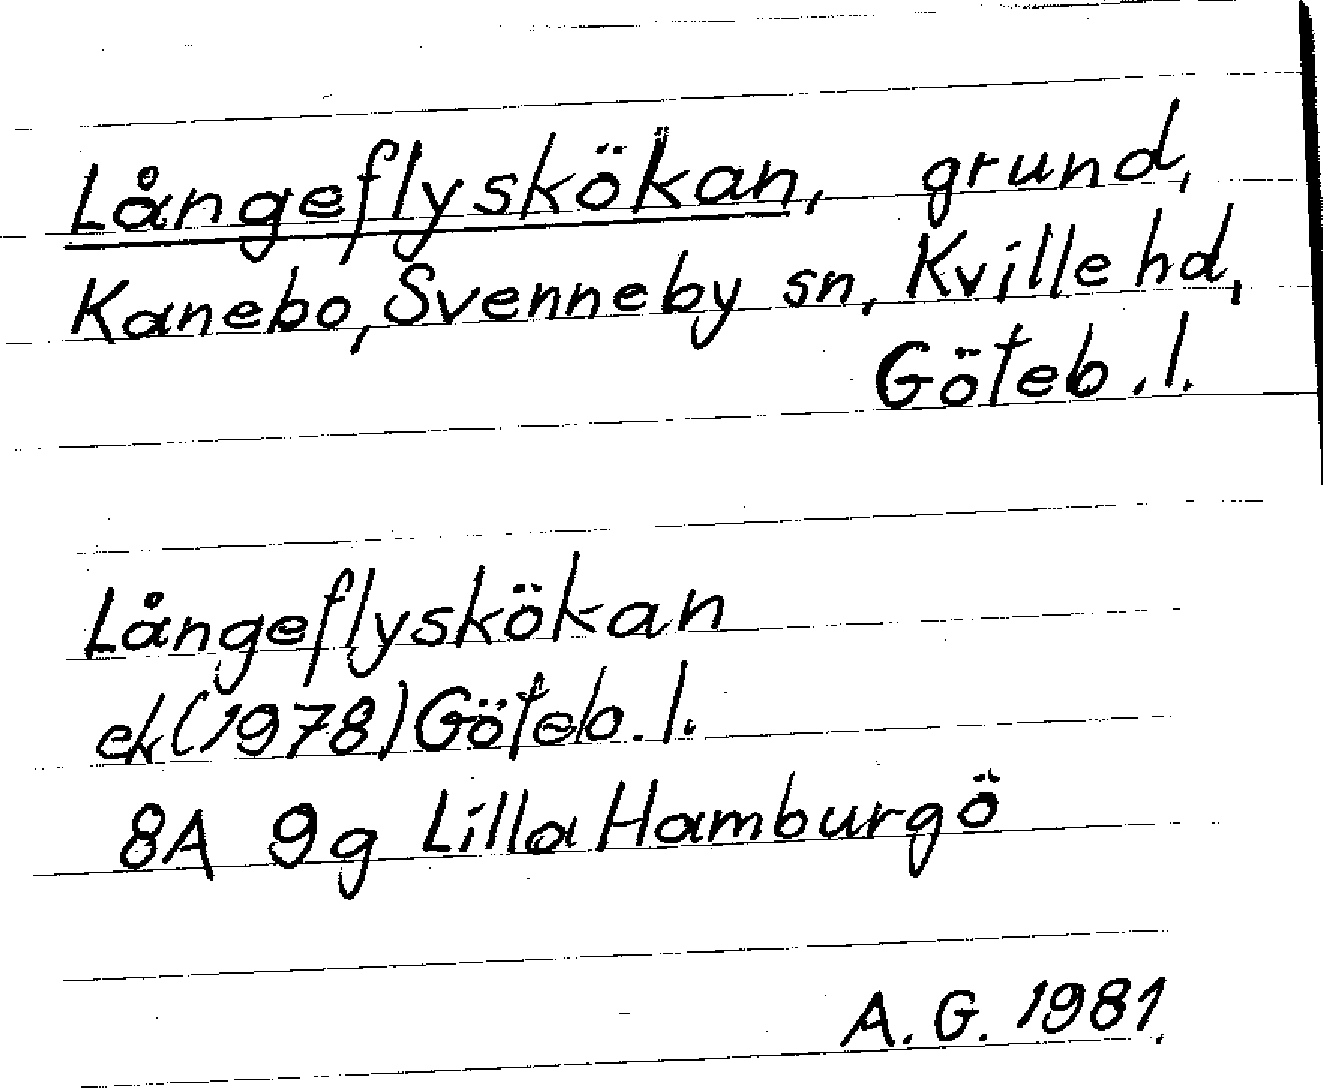 Långeflyskökan, grund,
Kanebo, Svenneby sn, Kville hd,
Göteb. l.
Långeflyskökan
ek (1978) Göteb. l.
8A 9g Lilla Hamburgö
A. G. 1981.